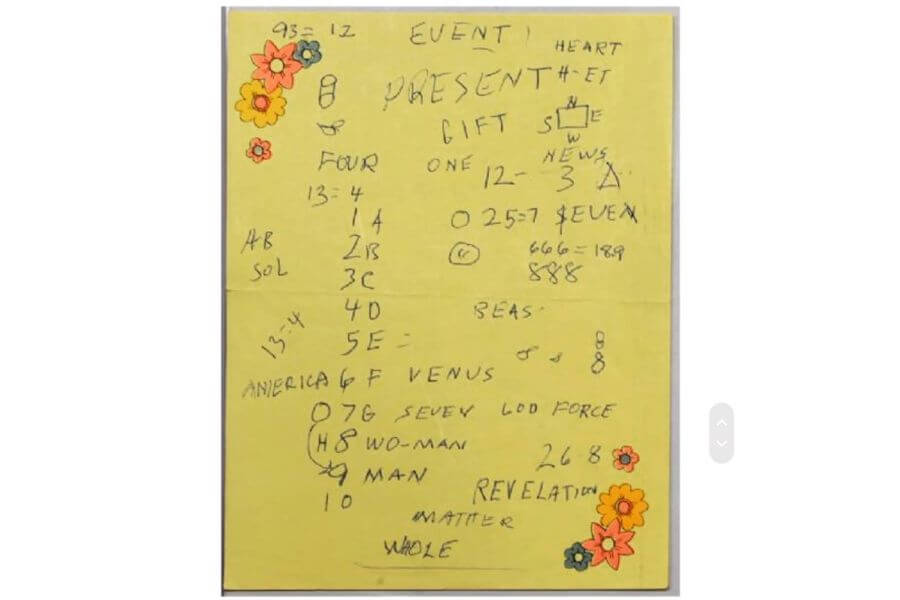 93 = 12 EVENT
HEART
8 PRESENT H-ET
GIFT N
S E
W
FOUR ONE NEWS
13 = 4 12 - 3 Δ
1 A O 25=7 $EVEN
AB 2B 666 = 189
SOL 3C 888
4D BEAS
13=4 5E = 8
8
AMERICA 6 F VENUS
O 7G SEVEN GOD FORCE
H 8 WO-MAN
26 8
9 MAN
10 REVELATION
MATTER
WHOLE